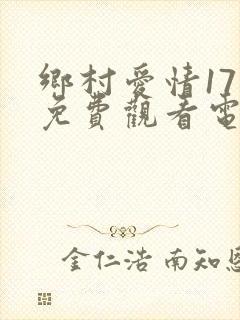 鄉村愛情17
免費觀看電
金仁浩 南知恩